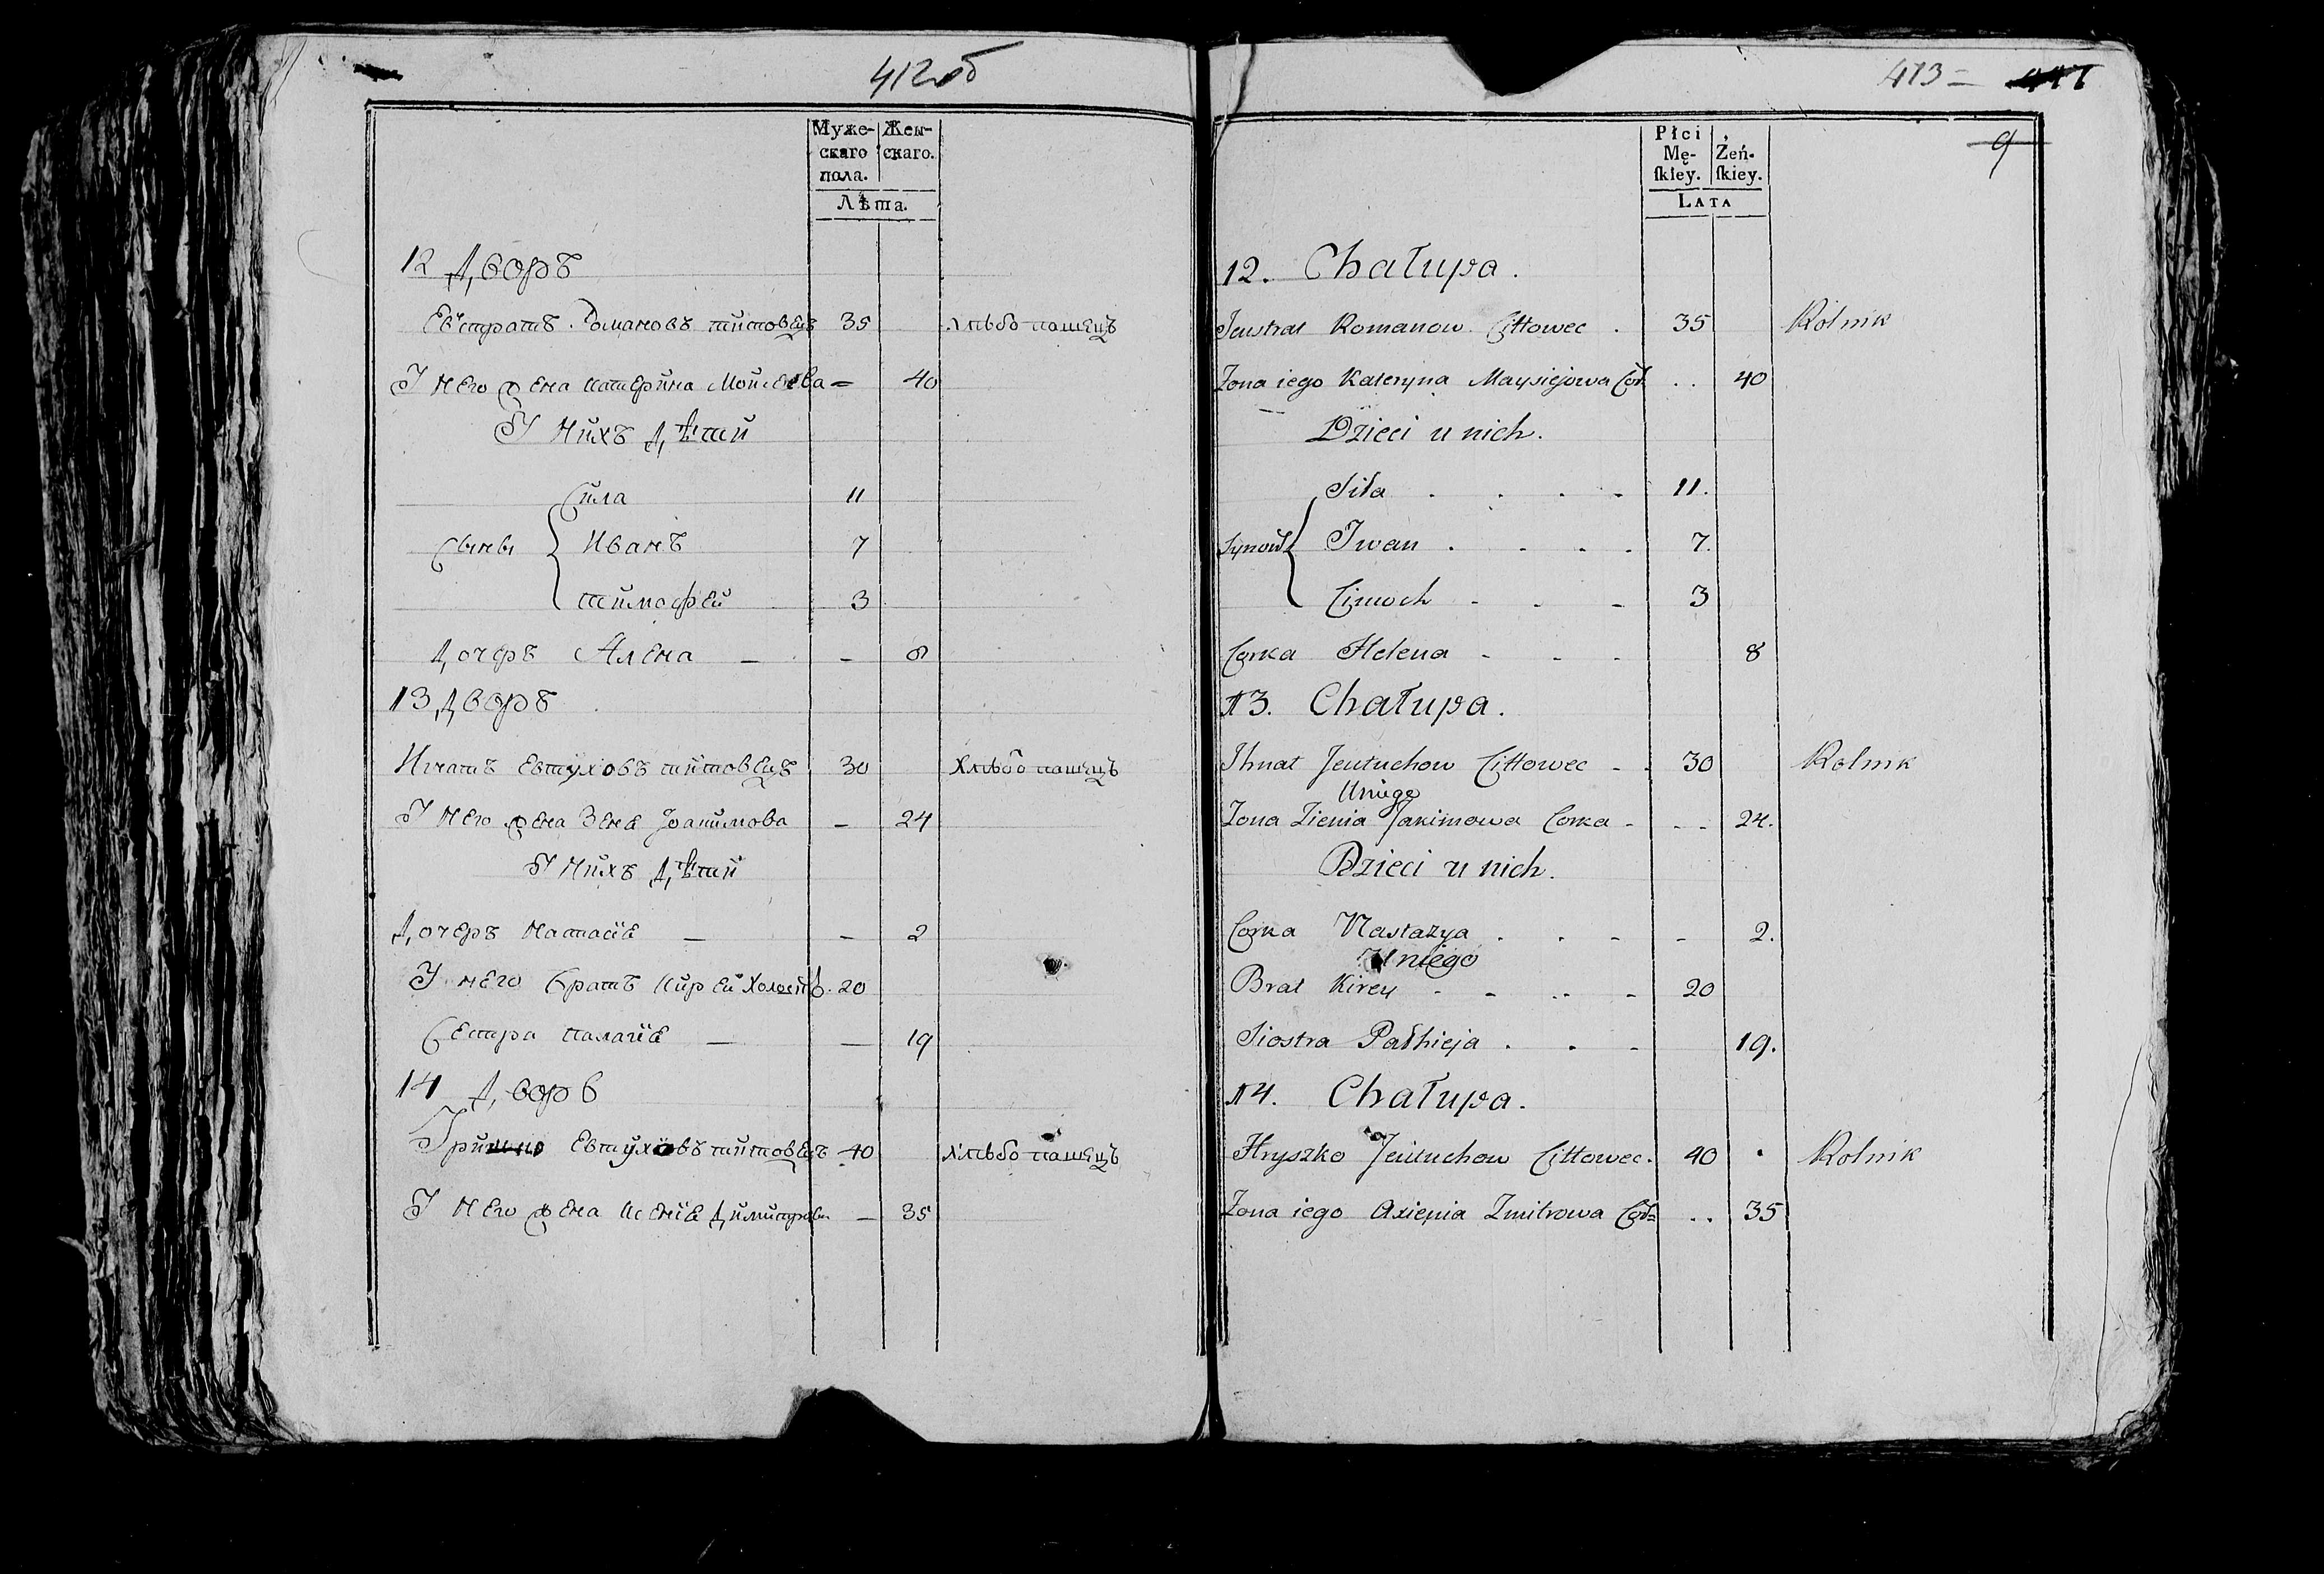 412об
Муже-
скаго
пола.
Жен-
скаго.
Лѣта.
12 Дворъ
Евстратъ Романовъ титовецъ 35 хлѣбопашецъ
У него жена катерина Моисеева – 40
У нихъ дѣти
Сила 11
Сыны { Иванъ 7
тимофей 3
Дочеръ Алена – – 8
13 Дворъ
Игнатъ Евтуховъ титовецъ 30 Хлѣбопашецъ
У него жена Зеня Якимова – 24
У нихъ дѣти
Дочеръ Настасія – – 2
У него братъ Кирей Холостъ 20
Сестра палагія – – 19
14 Дворъ
Гришко Евтуховъ титовецъ 40 хлѣбопашецъ
У него жена Ксенія Димитрова – 35
413 =
9
Płci
Mę-
ſkiey.
Żeń-
ſkiey.
LATA
12. Chałupa.
Jeustrat Romanow Cittowec . 35 Rolnik
Zona iego Kateryna Maysiejowa Cor. . . 40
Dzieci u nich.
Siła . . . . 11.
Synow { Iwan . . . . 7.
Cimoch - - - 3
Corka Helena - - - 8
13. Chałupa.
Ihnat Jeutuchow Cittowec - - 30 Rolnik
Uniego
Zona Zienia Jakimowa Corka - - - 24.
Dzieci u nich.
Corka Nastazya . . - - 2.
Uniego
Brat Kirey - - .. - 20
Siostra Pałhieja . . - 19.
14. Chałupa.
Hryszko Jeutuchow Cittowec. 40 . Rolnik
Zona iego Axienia Zmitrowa Cor= .. 35